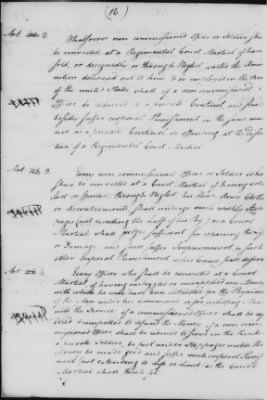 (16)
Art. 2. Whatsoever non commissioned Officer or Soldier shall
be convicted at a Regimental Court Martial of having
sold, or designedly or through Neglect, wasted the Ammu-
nition delivered out to him to be employed in the service
of the united States shall if a non commissioned
Officer be reduced to a private Centinel and shall
besides suffer corporal Punishment in the same man-
ner as a private Centinel so offending at the Discre-
tion of a Regimental Court Martial
Art. 3. Every non commissioned Officer or Soldier who
shall be convicted at a Court Martial of having sold
lost or spoiled through Neglect his Horse Arms Clothes
or Accoutrements shall undergo such weekly Stop-
pages (not exceeding the half of his Pay) as a Court
Martial shall judge sufficient for repairing the Loss
or Damage, and shall suffer Imprisonment or such
other corporal Punishment as his Crime shall deserve
Art. 4. Every Officer who shall be convicted at a Court
Martial of having embezzled or misapplied any Money
with which he may have been intrusted for the Payment
of the Men under his Command or for enlisting Men
into the Service if a commissioned Officer shall be cash-
iered & compelled to refund the Money if a non com-
missioned Officer shall be reduced to serve in the Ranks as
a private Soldier, be put under Stoppages until the
Money be made good and suffer such corporal Punish-
ment (not extending to Life or Limb) as the Court
Martial shall think fit